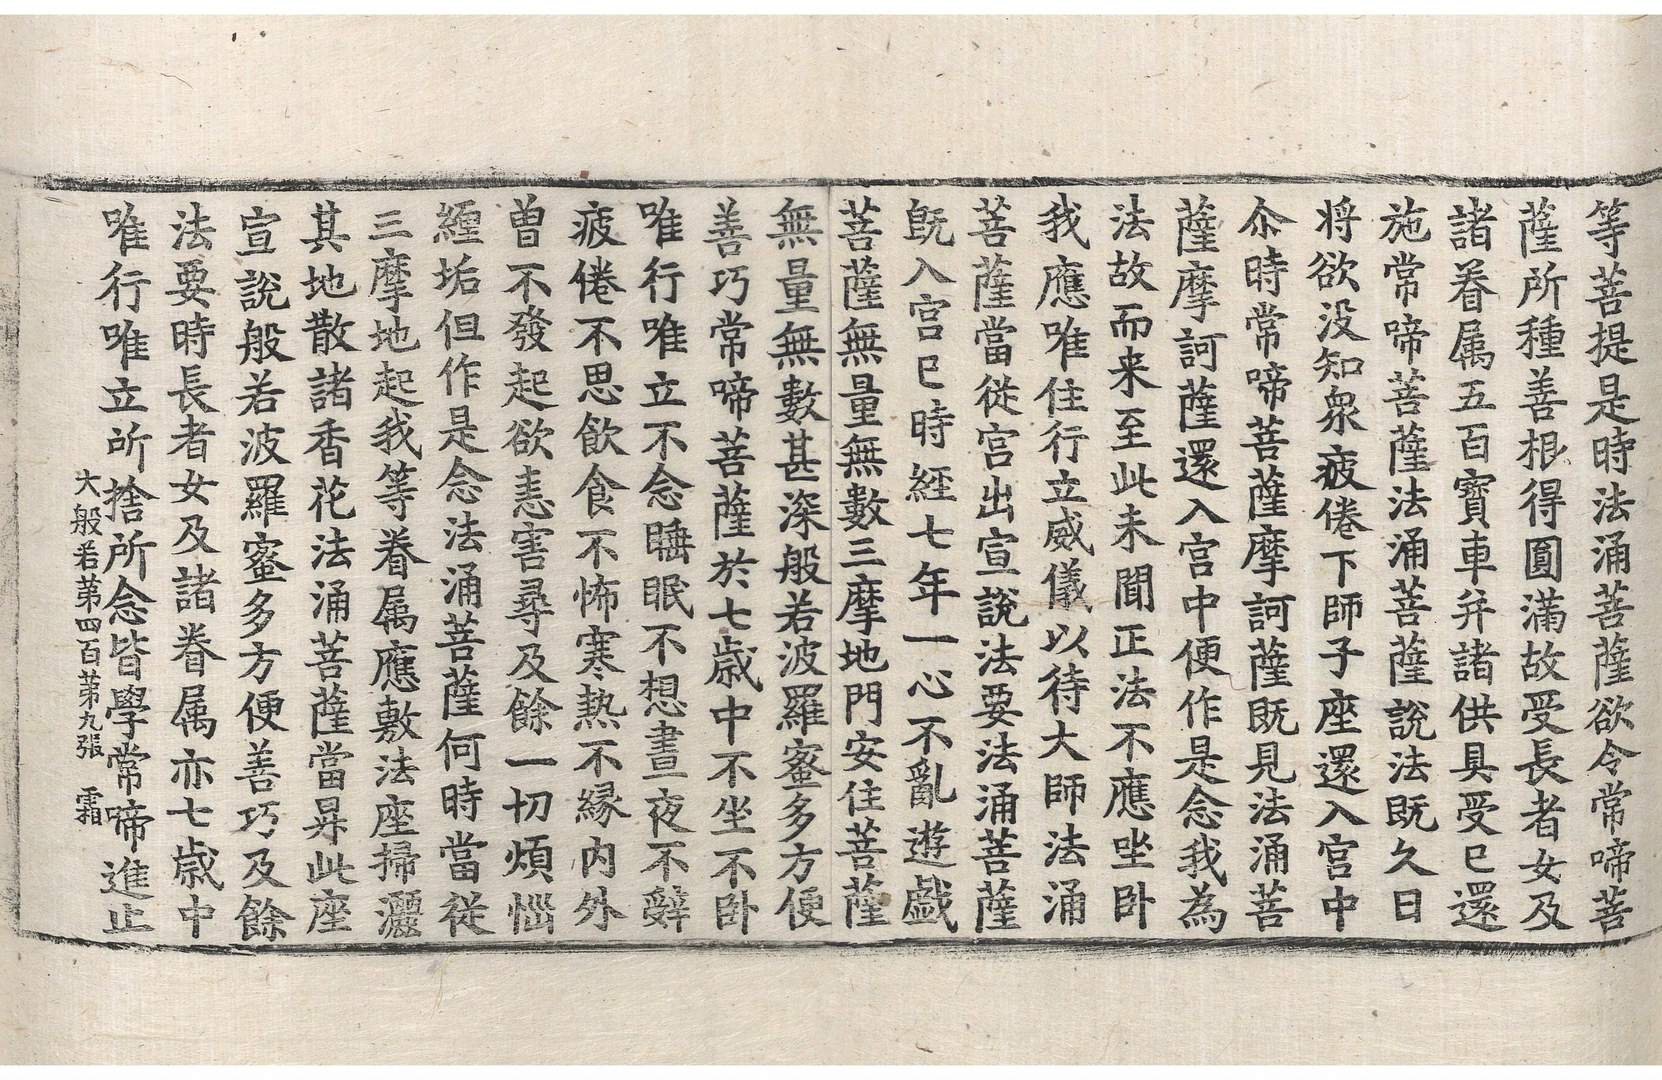 等菩提是時法涌菩薩欲令常啼菩
薩所種善根得圓滿故受長者女及
諸眷属五百寳車并諸供具受已還
施常啼菩薩法涌菩薩說法既久日
将欲没知衆疲倦下師子座還入宫中
尒時常啼菩薩摩訶薩既見法涌菩
薩摩訶薩還入宫中便作是念我為
法故而来至此未聞正法不應坐卧
我應唯住行立威儀以待大師法涌
菩薩當從宫出宣說法要法涌菩薩
既入宫已時經七年一心不亂遊戯
菩薩無量無數三摩地門安住菩薩
無量無數甚深般若波羅蜜多方便
善巧常啼菩薩於七歳中不坐不卧
唯行唯立不念睡眠不想晝夜不辭
疲倦不思飲食不怖寒熱不縁内外
曽不發起欲恚害尋及餘一切煩惱
纏垢但作是念法涌菩薩何時當從
三摩地起我等眷属應敷法座掃灑
其地散諸香花法涌菩薩當昇此座
宣說般若波羅蜜多方便善巧及餘
法要時長者女及諸眷属亦七歳中
唯行唯立所捨所念皆學常啼進止
大般若第四百第九張　霜